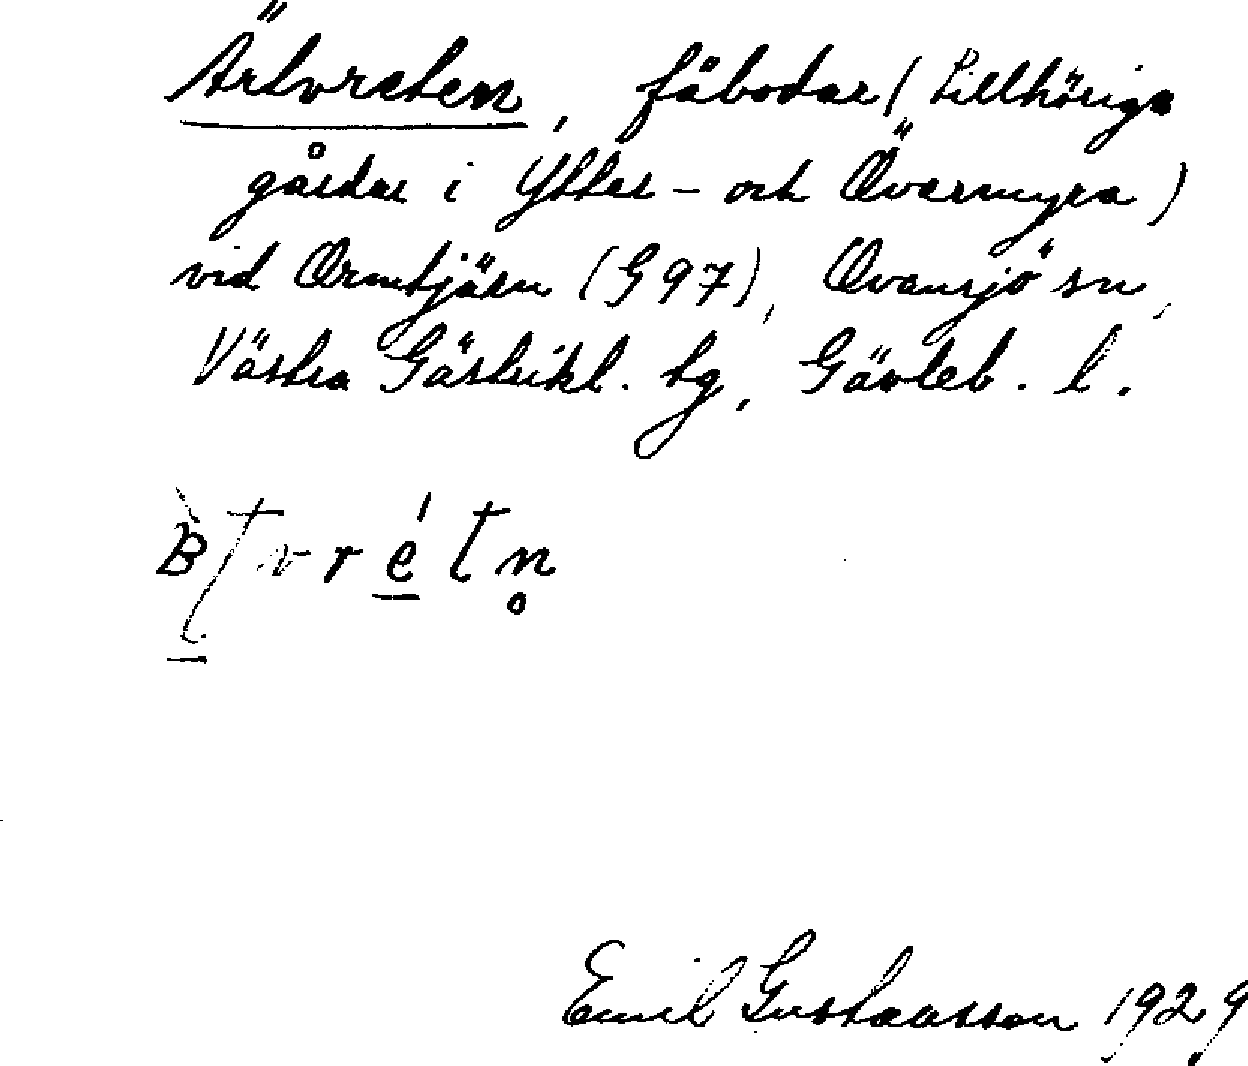 Ärtvreten, fäbodar (tillhöriga
gårdar i Ytter- och Övermyra)
vid Ormtjärn (G 97), Ovansjö sn,
Västra Gästrikl. tg, Gävleb. l.
Emil Gustavsson 1929